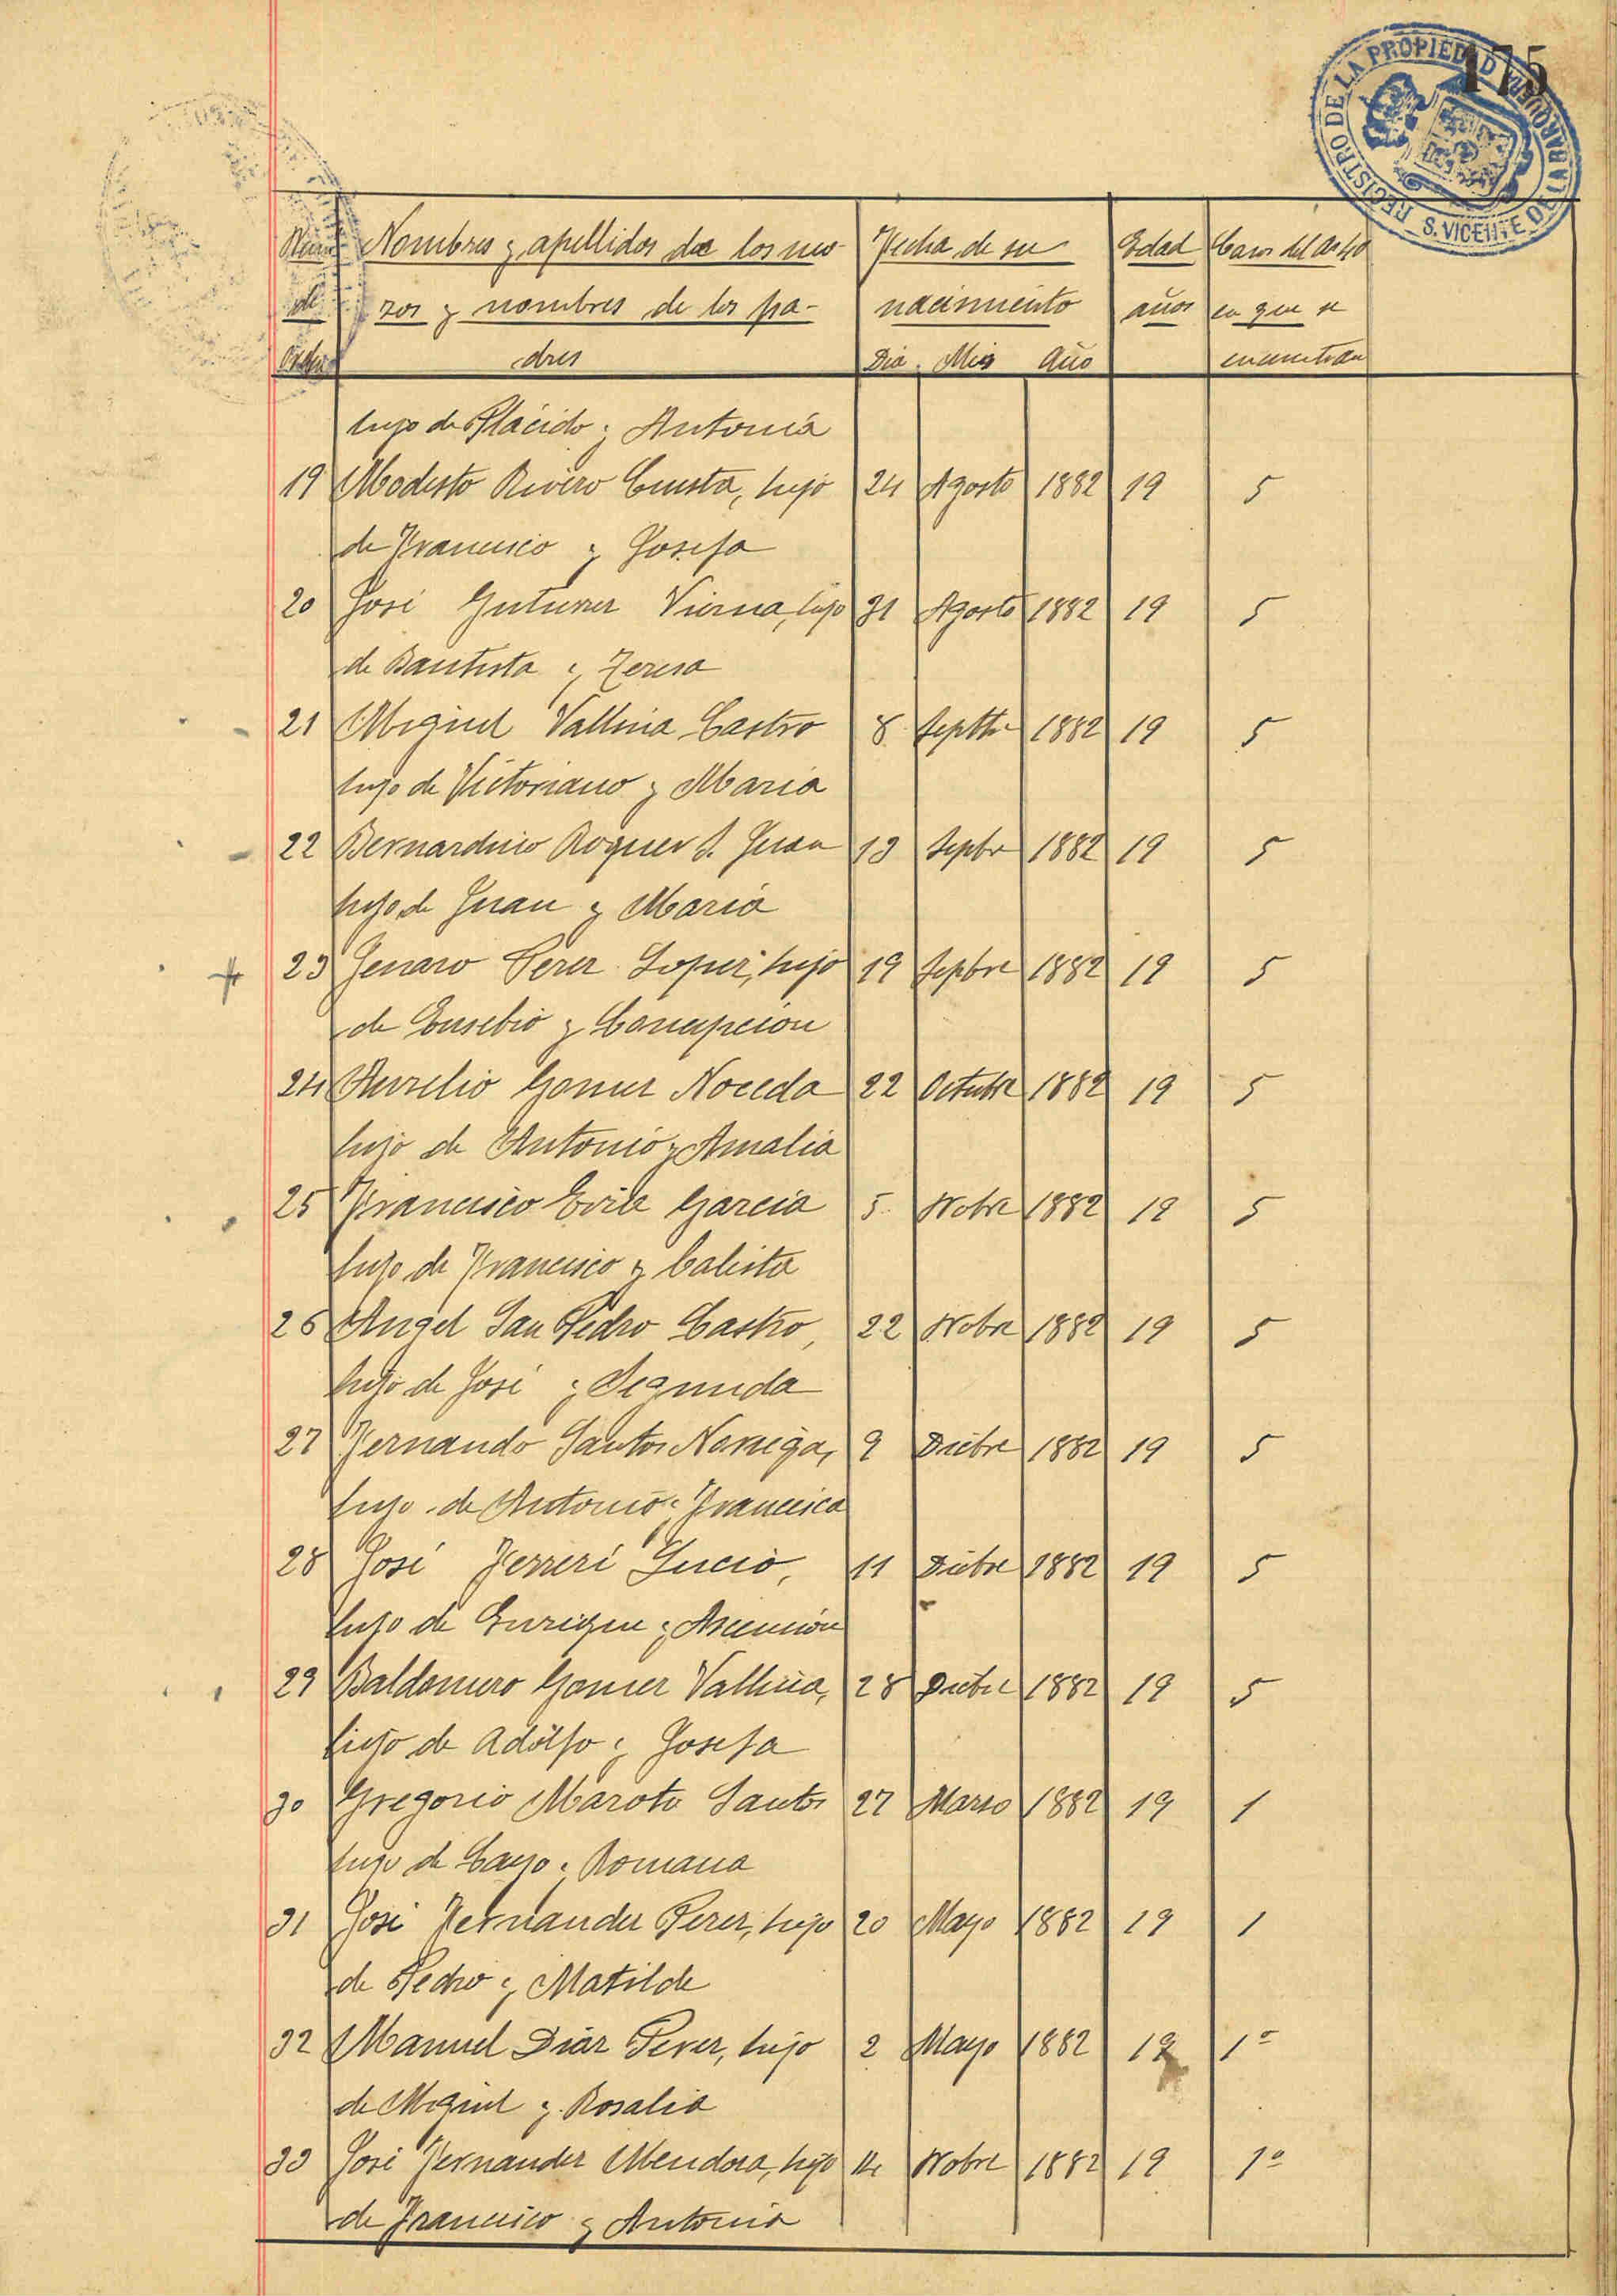 175
REGISTRO DE LA PROPIEDAD S. VICENTE DE LA BARQUERA
Num Nombres y apellidos de los mo- Fecha de su Edad Casos del Art 40
de zos y nombres de los pa- nacimiento años en que se
Orden dres Dia Mes Año encuentran
hijo de Plácido y Antonia
19 Modesto Rivero Cuesta, hijo 24 Agosto 1882 19 5
de Francisco y Josefa
20 José Gutierrez Vierna, hijo 31 Agosto 1882 19 5
de Bautista y Teresa
21 Miguel Vallina Castro 8 Septbre 1882 19 5
hijo de Victoriano y Maria
22 Bernardino Roguer S. Juan 13 Sepbre 1882 19 5
hijo de Juan y Maria
23 Genaro Perez Lopez, hijo 19 Sepbre 1882 19 5
de Eusebio y Concepcion
24 Aurelio Gomez Noceda 22 Octubre 1882 19 5
hijo de Antonio y Amalia
25 Francisco García 5 Nobre 1882 19 5
hijo de Francisco y Calista
26 Angel San Pedro Castro, 22 Nobre 1882 19 5
hijo de José y Segunda
27 Fernando Santos Noriega, 9 Dicbre 1882 19 5
hijo de Antonio y Francisca
28 José Ferrerí Lucio, 11 Dicbre 1882 19 5
hijo de Enrique y Ascension
29 Baldomero Gomez Vallina, 28 Dicbre 1882 19 5
hijo de Adolfo y Josefa
30 Gregorio Maroto Santos 27 Marzo 1882 19 1
hijo de Cayo y Romana
31 José Fernandez Perez, hijo 20 Mayo 1882 19 1
de Pedro y Matilde
32 Manuel Diaz Perez, hijo 2 Mayo 1882 19 1º
de Miguel y Rosalia
33 José Fernandez Mendoza, hijo 14 Nobre 1882 19 1º
de Francisco y Antonia